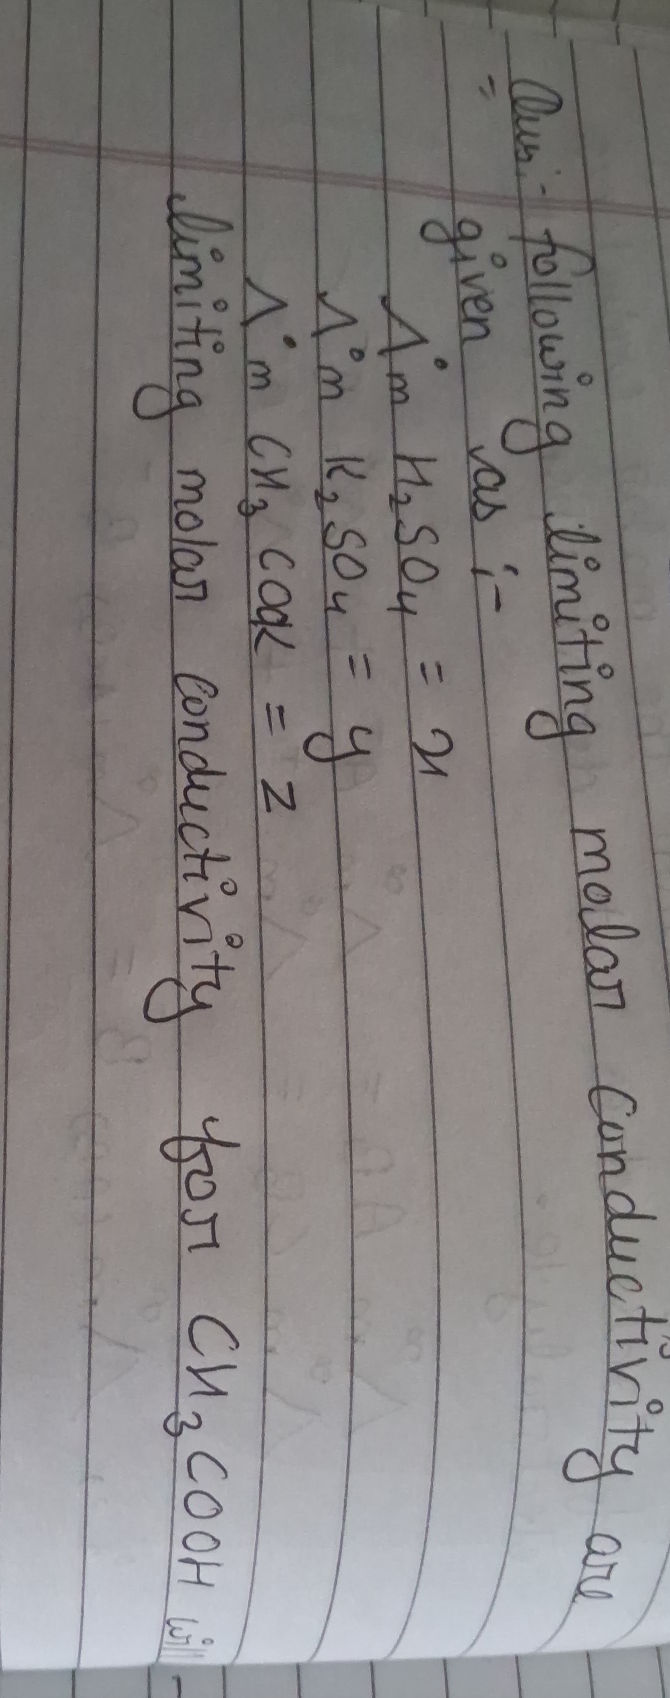 Ques:- following limiting molar conductivity are
given as :-
Λ°m H₂SO₄ = x
Λ°m K₂SO₄ = y
Λ°m CH₃COOK = z
limiting molar conductivity for CH₃COOH will -